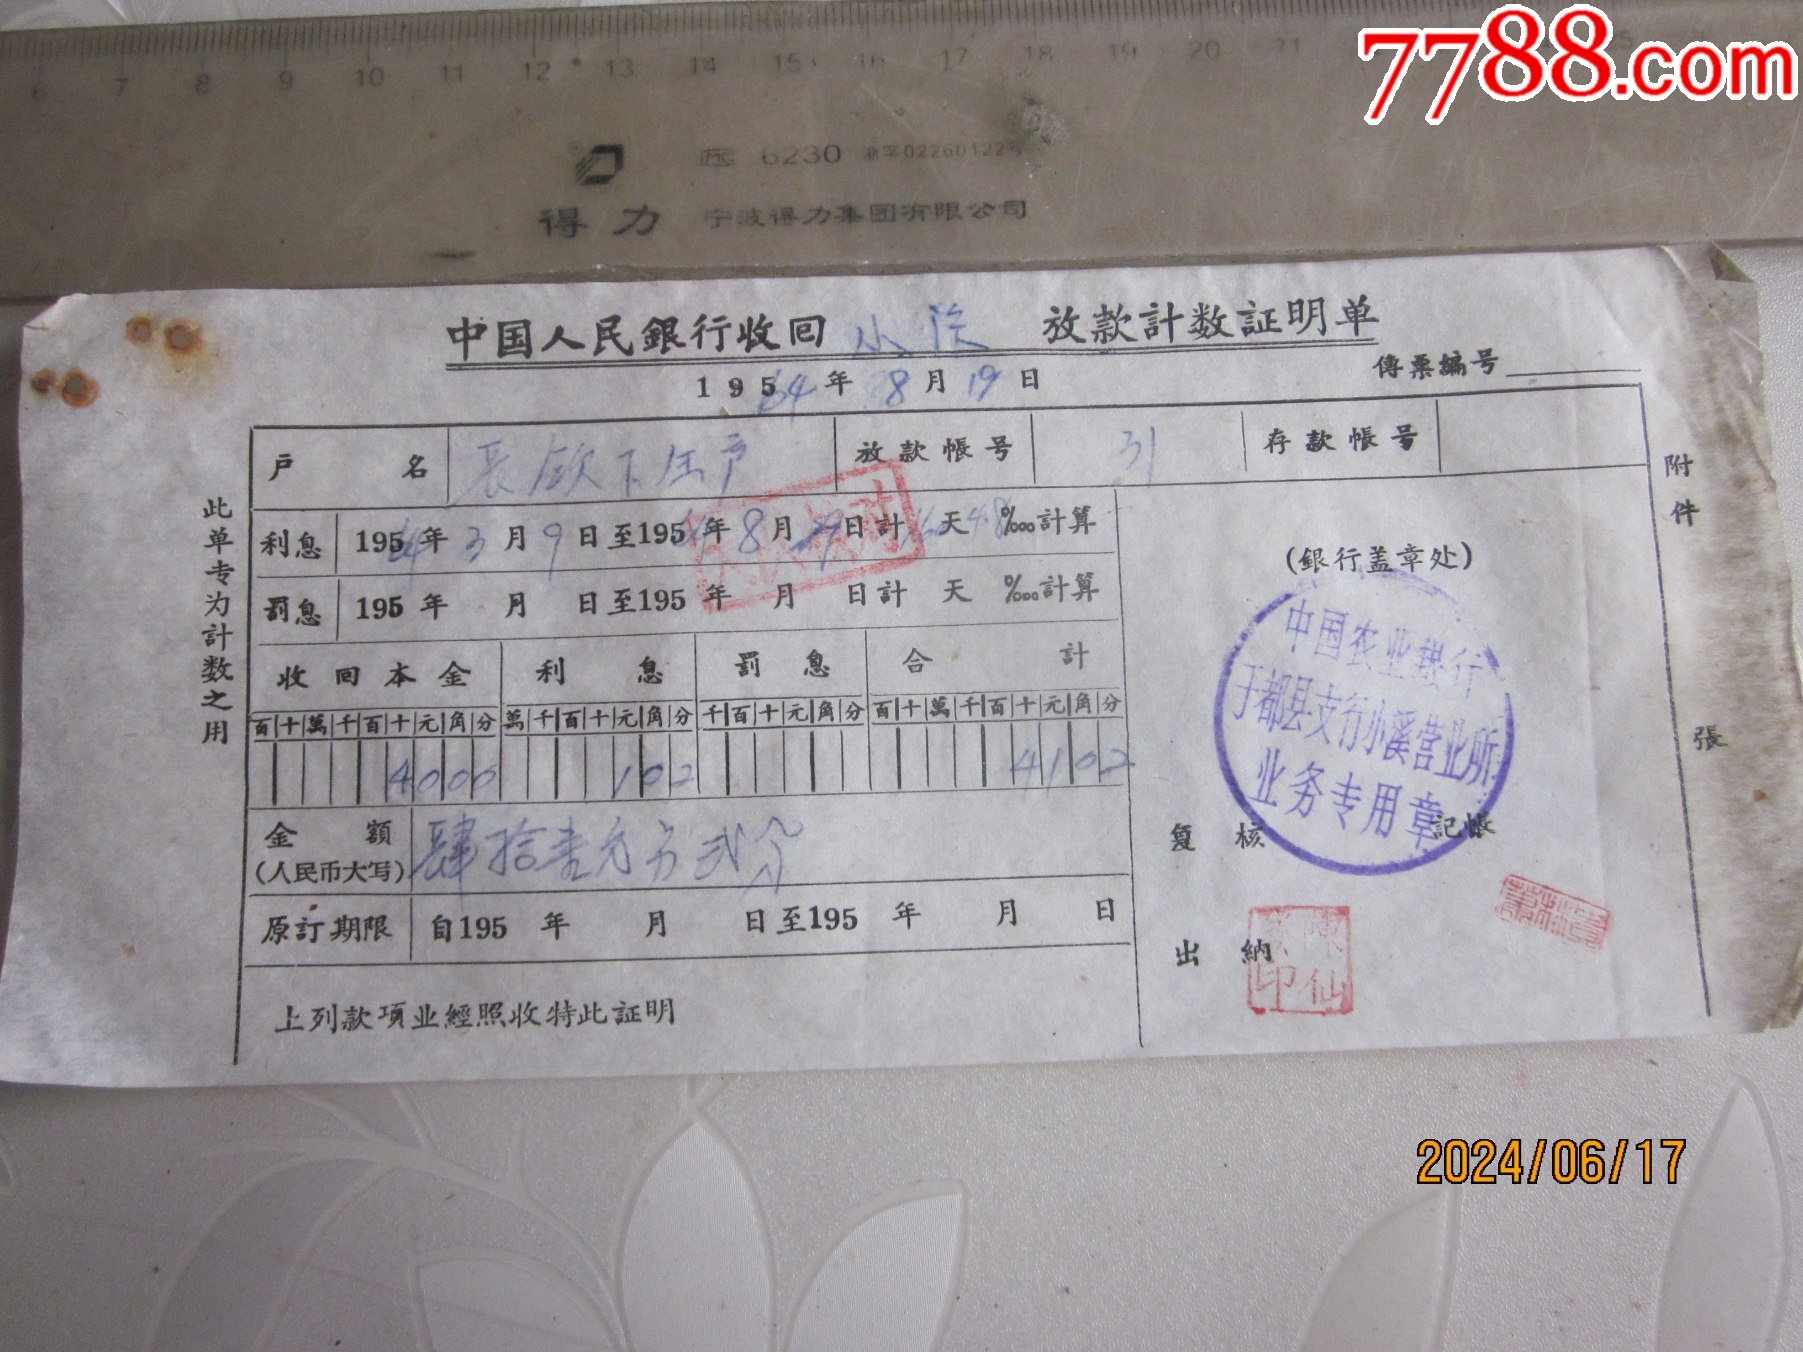 7788.com
6 7 8 9 10 11 12 13 14 15 16 17 18 19 20 21
6230 02260122号
得力 宁波得力集团有限公司
中国人民銀行收回 放款計数証明单
1964年8月19日
傳票編号
户名 放款帳号 31 存款帳号
利息 195 年3月9日至195 年8月 日計 天 ‱計算
罰息 195 年 月 日至195 年 月 日計 天 ‱計算
收回本金 利息 罰息 合計
百十萬千百十元角分 萬千百十元角分 千百十元角分 百十萬千百十元角分
4000 102 4102
金額 肆拾壹元 弍分
(人民币大写)
原訂期限 自195 年 月 日至195 年 月 日
上列款項业經照收特此証明
此单专为計数之用
(銀行盖章处)
中国农业銀行
于都县支行小溪营业所
业务专用章
复核 記帳
出納
附件 張
2024/06/17